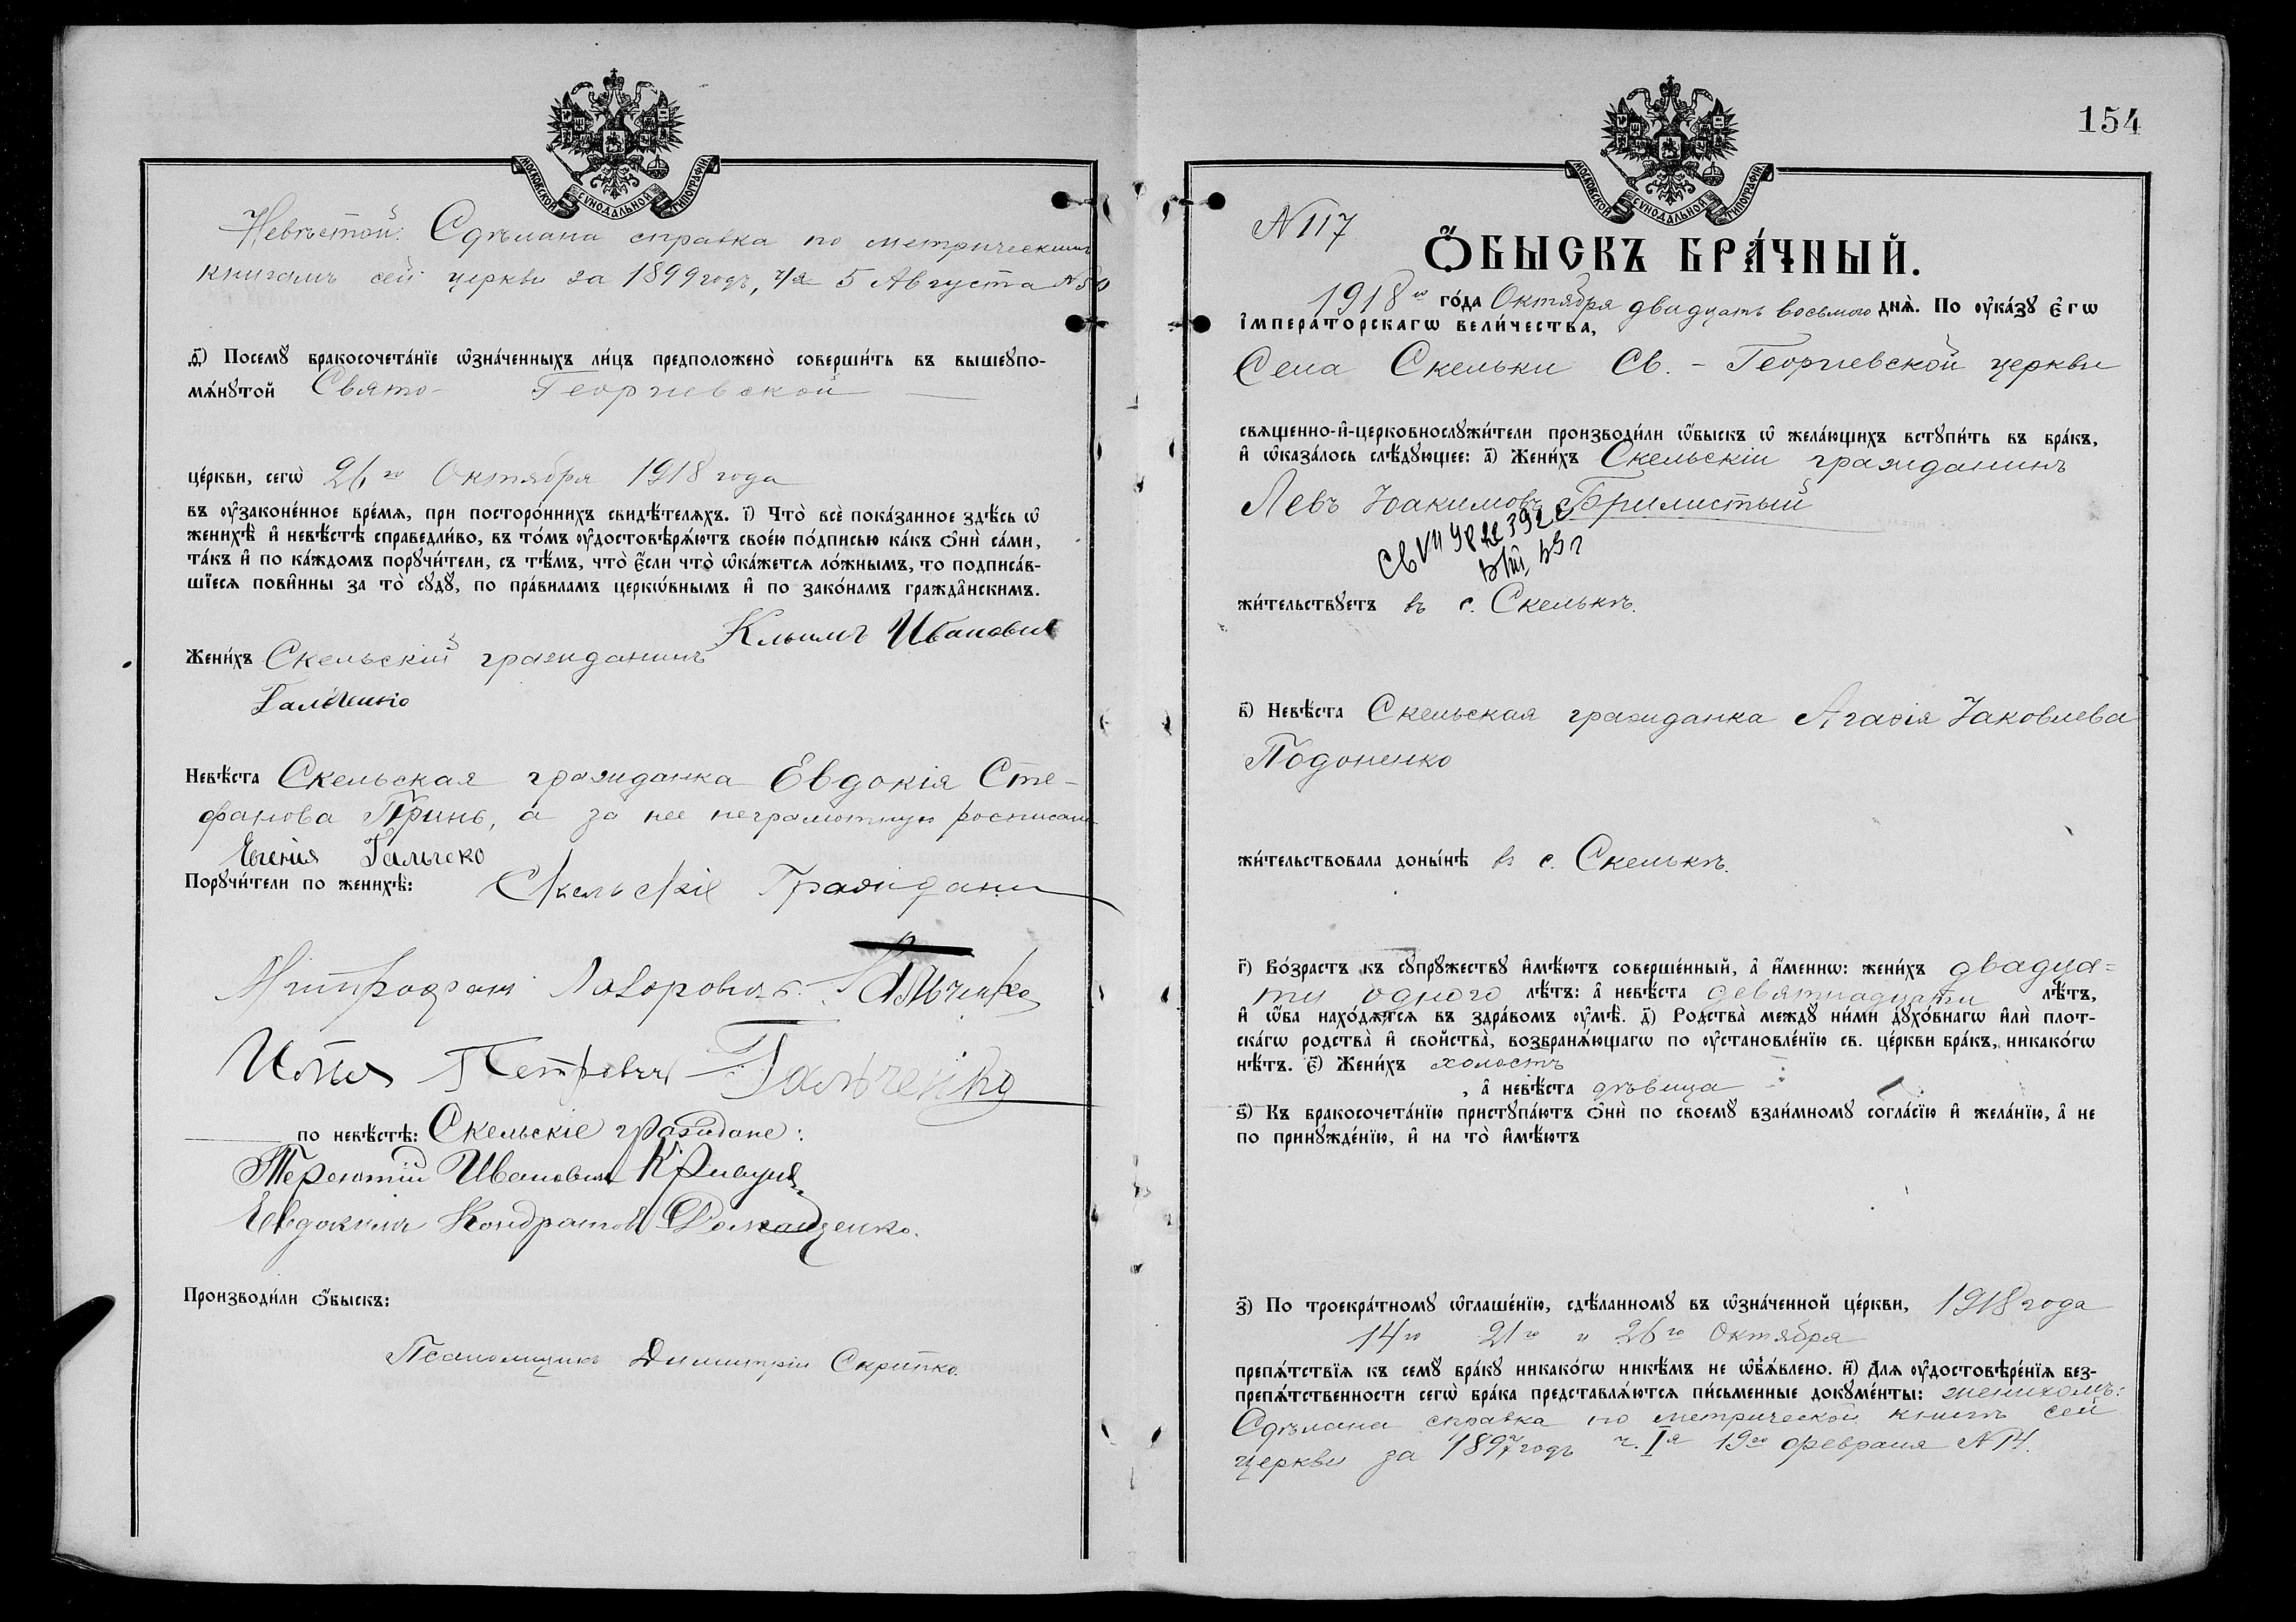 МОСКОВСКОЙ СѴНОДАЛЬНОЙ ТИПОГРАФІИ
Невѣстой: Сдѣлана справка по метрическимъ
книгамъ сей церкви за 1899 годъ, 5 Августа №
д҃) Посемꙋ бракосочета́нїе ѡ҆зна́ченныхъ ли́цъ предположено̀ соверши́ть въ вышеꙋпо-
мѧ́нꙋтой Свято- Георгиевской
це́ркви, сегѡ̀ 26го Октября 1918 года
въ ᲂу҆законе́нное вре́мѧ, при посторо́ннихъ свидѣ́телѧхъ. і҃) Что̀ всѐ пока́занное здѣ́сь ѡ҆
женихѣ̀ и҆ невѣ́стѣ справедли́во, въ то́мъ ᲂу҆достовѣрѧ́ютъ свое́ю по́дписью ка́къ ѻ҆нѝ са́ми,
та́къ и҆ по ка́ждомъ порꙋчи́тели, съ тѣ́мъ, что̀ є҆́сли что̀ ѡ҆ка́жется ло́жнымъ, то подписа́в-
шїесѧ пови́нны за то̀ сꙋдꙋ̀, по пра́виламъ церкѡ́внымъ и҆ по зако́намъ гражда́нскимъ.
Жени́хъ Скельскій гражданинъ Климъ Иванович
Гальченко
Невѣ́ста Скельская гражданка Евдокія Сте-
фанова Принь, а за нее неграмотную росписан
Евгенія
Порꙋчи́тели по женихѣ̀: Скельскіе Граждани
Митрофан Гальченко
Илья Петрович Гальченко
по невѣ́стѣ: Скельскіе граждане:
Терентий Иванович
Евдокимъ Кондратов
Производи́ли ѻ҆́быскъ:
Псаломщикъ Димитрій Скрипко.
154
МОСКОВСКОЙ СѴНОДАЛЬНОЙ ТИПОГРАФІИ
N 117
Ѻ҆́БЫСКЪ БРА́ЧНЫЙ.
1918го го́да Октября двадцать восьмого днѧ̀. По ᲂу҆ка́зꙋ є҆гѡ̀
і҆мпера́торскагѡ вели́чества,
Села Скельки Св. - Георгиевской церкви
свѧщенно-и҆-церковнослꙋжи́тели производи́ли ѡ҆́быскъ ѡ҆ жела́ющихъ встꙋпи́ть въ бра́къ,
и҆ ѡ҆каза́лось слѣ́дꙋющее: а҃) Жени́хъ Скельскій гражданинъ
Левъ Іоакимовъ
жи́тельствꙋетъ въ с. Скелькѣ.
в҃) Невѣ́ста Скельская гражданка Агафія Іаковлева
Подоненко
жи́тельствовала доны́нѣ въ с. Скелькѣ.
г҃) Во́зрастъ къ сꙋпрꙋжествꙋ и҆мѣ́ютъ соверше́нный, а҆ и҆́меннѡ: жени́хъ двадца=
ти одного лѣ́тъ: а҆ невѣ́ста девятнадцати лѣ́тъ,
и҆ ѡ҆́ба нахо́дѧтсѧ въ здра́вомъ ᲂу҆мѣ̀. д҃) Родства̀ междꙋ ни́ми дꙋхо́внагѡ и҆лѝ плот-
ска́гѡ родства̀ и҆ сво́йства̀, возбранѧ́ющагѡ по ᲂу҆становле́нїю св. це́ркви бра́къ, никако́гѡ
нѣ́тъ. є҃) Жени́хъ холостъ
, а҆ невѣ́ста дѣвица
ѕ҃) Къ бракосочета́нїю пристꙋпа́ютъ ѻ҆нѝ по своемꙋ̀ взаи́мномꙋ согла́сїю и҆ жела́нїю, а҆ не
по принꙋжде́нїю, и҆ на то̀ и҆мѣ́ютъ
з҃) По троекра́тномꙋ ѡ҆глаше́нїю, сдѣ́ланномꙋ въ ѡ҆зна́ченной це́ркви, 1918 года
14го 21го и 26го Октября
препѧ́тствїѧ къ семꙋ̀ бра́кꙋ никако́гѡ никѣ́мъ не ѡ҆б̾ѧ́влено. и҃) Для ᲂу҆достовѣре́нїѧ без-
препѧ́тственности сегѡ̀ бра́ка представлѧ́ютсѧ пи́сьменные докꙋме́нты: женихомъ:
Сдѣлана справка по метрической книгѣ сей
церкви за 1897 годъ ч. Iя 19го февраля N 14.